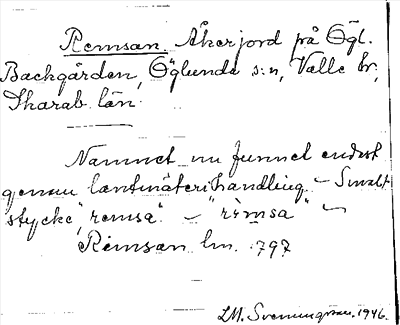 Remsan. Åkerjord på Ögl.
Backgården, Öglunda s:n, Valle hr,
Skarab. län.
Namnet nu funnet endast
genom lantmäterihandling. – Smalt
stycke, "remsa". – "rimsa" –
Rimsan lm. 1797
LM. Svenungsson. 1946.